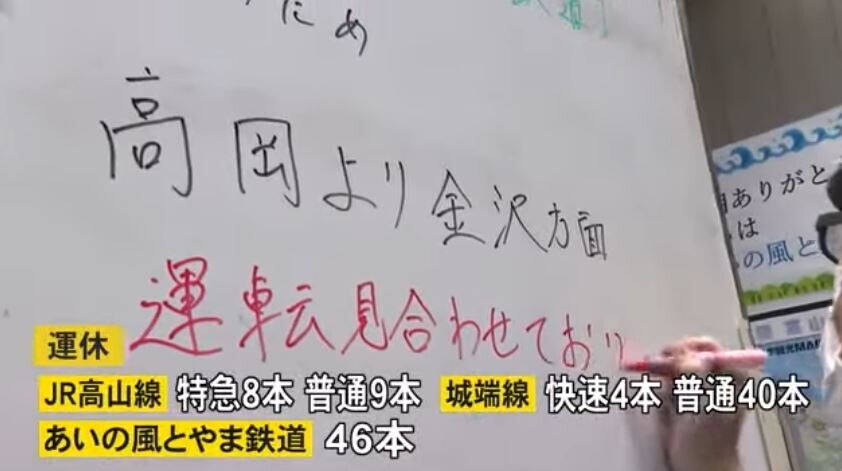 ため
高岡より金沢方面
運転見合わせており
ありがと
は
の風と
運休
JR高山線 特急8本 普通9本 城端線 快速4本 普通40本
あいの風とやま鉄道 46本